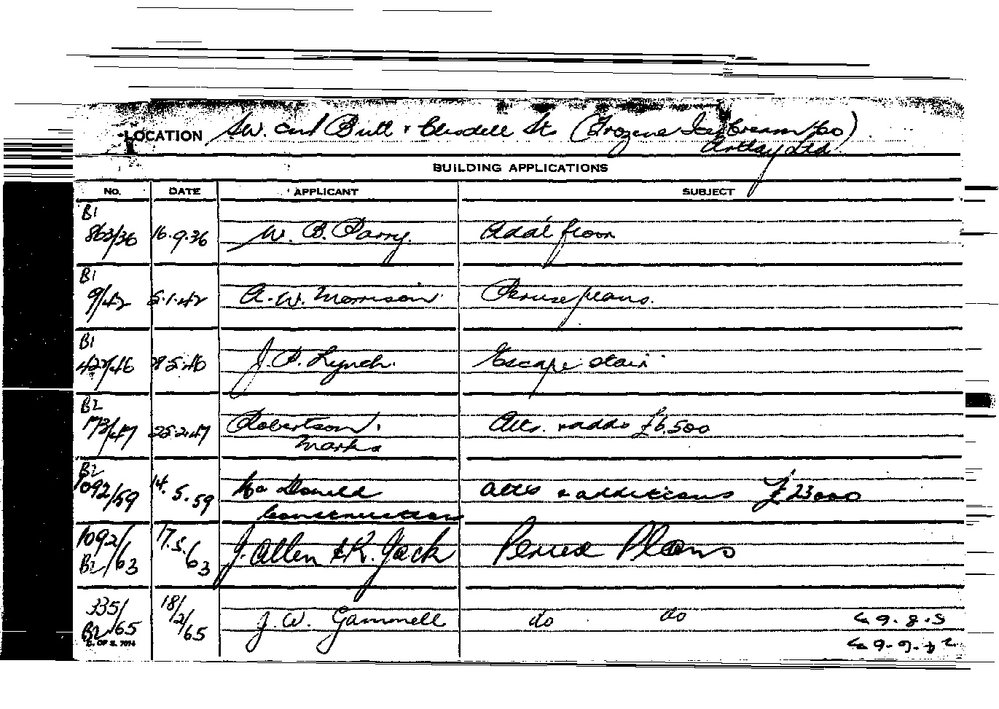 LOCATION SW. Cnr Butt & Clisdell Sts (Frozene Ice Cream Co)
Artlay Ltd.
BUILDING APPLICATIONS
NO. DATE APPLICANT SUBJECT
B1
863/36 16.9.36 W. B. Parry. Addl floor
B1
9/42 5.1.42 A. W. Morrison Peruse plans.
B1
427/46 28.5.46 J. P. Lynch. Escape stair
B2
173/47 25.2.47 Robertson, Alts. & adds £6,500
Marks
B2
1092/59 14.5.59 McDonald Alts & additions £23000
Construction
1092/ 17.5. J. Allen & R. Jack Peruse Plans
B2/63 63
335/ 18/
B2/65 2/65 J. W. Gammell do do